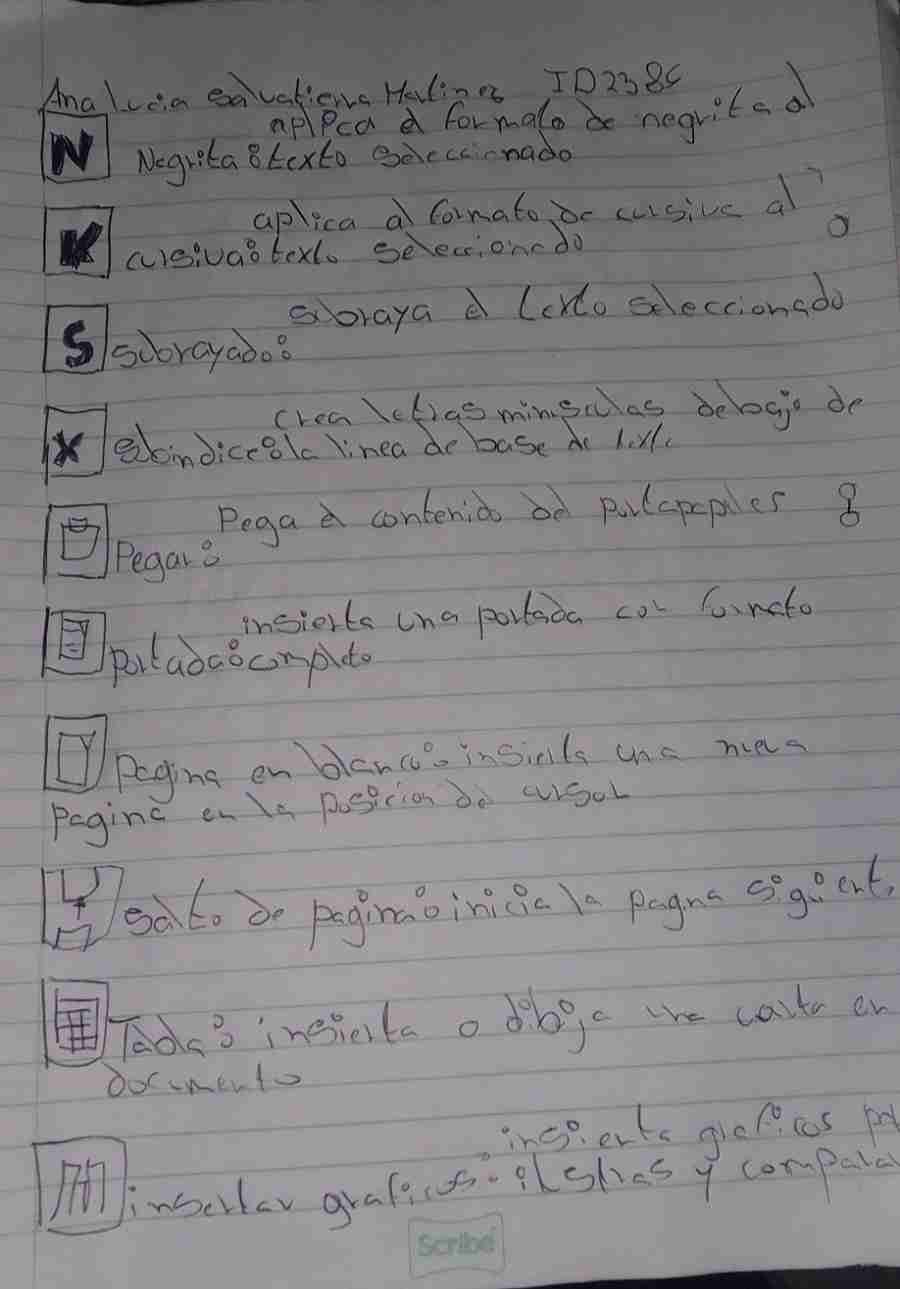 Analucia Salvatierra Martinez ID2386
aplica el formato de negrita al
N Negrita: texto seleccionado
aplica al formato de cursiva al
K cursiva: texto seleccionado
subraya el texto seleccionado
S subrayado:
crea letras minisculas debajo de
X subindice: la linea de base de texto
Pega el contenido del portapapeles
Pegar:
inserta una portada con formato
portada: completo
pagina en blanco: insierta una nueva
pagina en la posicion del cursor
salto de pagina: inicia la pagna siguiente
insierta o dibuja una en
documento
insierta graficos
insertar graficos: y
Scribe